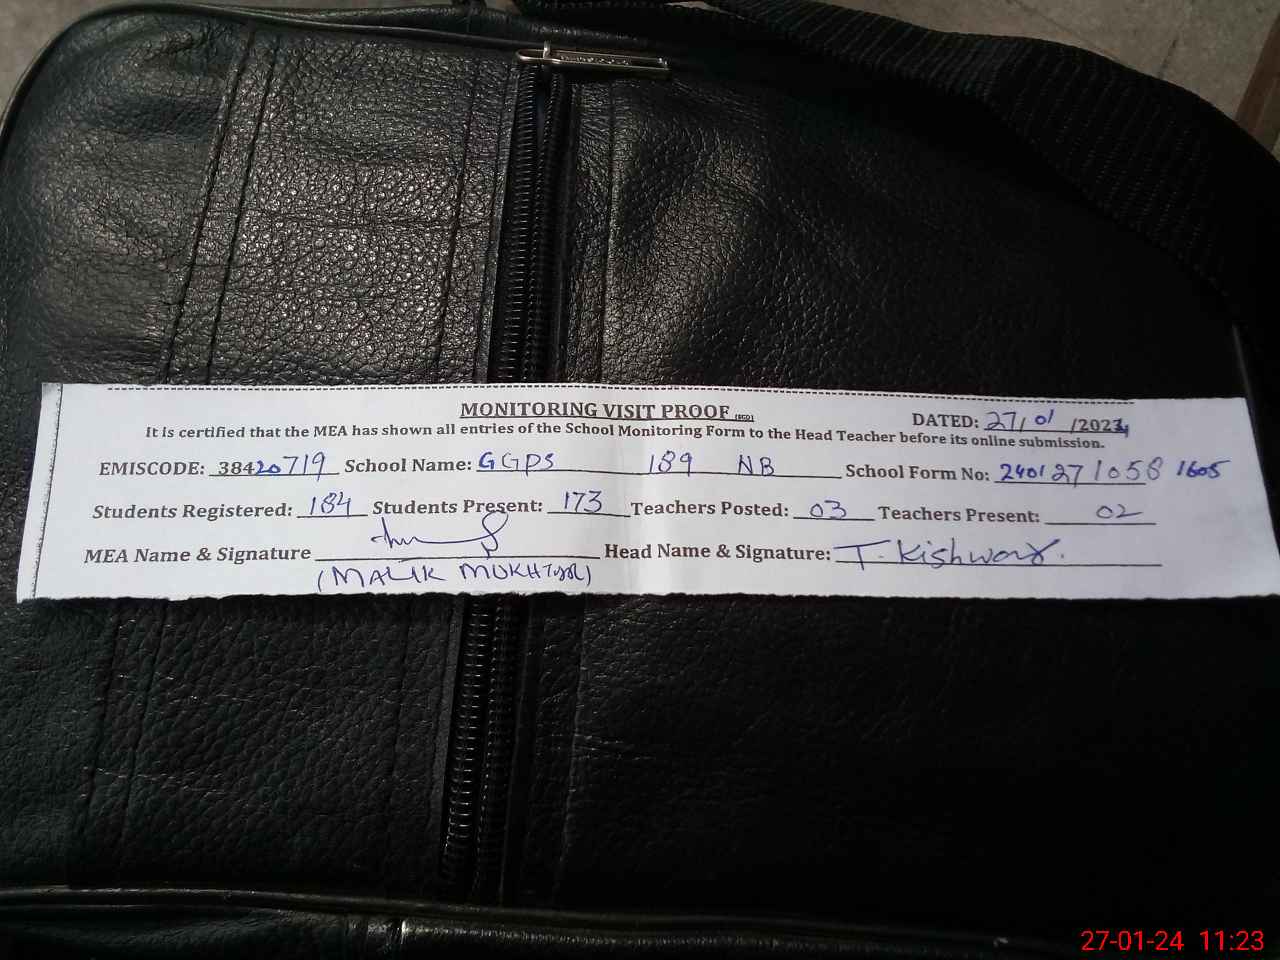 MONITORING VISIT PROOF
DATED: 27/01/2024
It is certified that the MEA has shown all entries of the School Monitoring Form to the Head Teacher before its online submission.
EMISCODE: 38420719 School Name: GGPS 189 NB School Form No: 2401271058 1605
Students Registered: 184 Students Present: 173 Teachers Posted: 03 Teachers Present: 02
MEA Name & Signature Head Name & Signature: T. Kishwar.
(MALIK MUKHTAR)
27-01-24 11:23